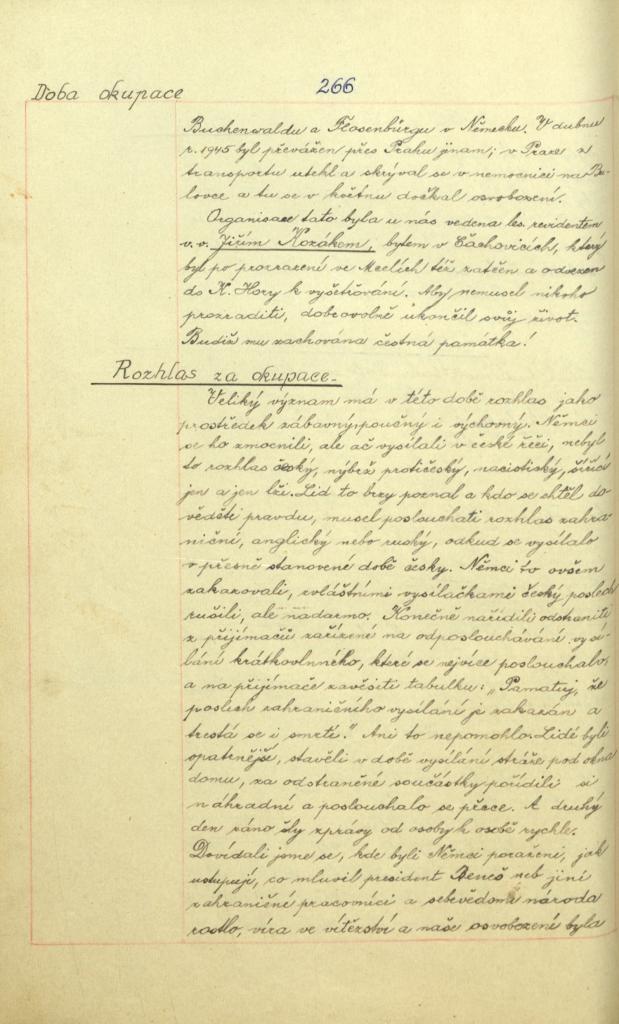 Doba okupace
266
Buchenwaldu a Flosenbürgu v Německu. V dubnu
r. 1945 byl převážen přes Prahu jinam; v Praze z
transportu utekl a skrýval se v nemocnici na Bu-
lovce a tu se v květnu dočkal osvobození.
Organisace tato byla u nás vedena les. revidentem
v. v. Jiřím Kozákem, bytem v Čachovicích, který
byl po prozrazení ve Mcelích též zatčen a odvezen
do K. Hory k vyšetřování. Aby nemusel nikoho
prozraditi, dobrovolně ukončil svůj život.
Budiž mu zachována čestná památka!
Rozhlas za okupace.
Veliký význam má v této době rozhlas jako
prostředek zábavný, poučný i výchovný. Němci
se ho zmocnili, ale ač vysílali v české řeči, nebyl
to rozhlas český, nýbrž protičeský, nacistický, šířící
jen a jen lži. Lid to brzy poznal a kdo se chtěl do-
věděti pravdu, musel poslouchati rozhlas zahra-
niční, anglický nebo ruský, odkud se vysílalo
v přesně stanovené době česky. Němci to ovšem
zakazovali, zvláštními vysílačkami český poslech
rušili, ale nadarmo. Konečně nařídili odstraniti
z přijímačů zařízení na odposlouchávání vysí-
lání krátkovlnného, které se nejvíce poslouchalo,
a na přijímače zavěsiti tabulku: „Pamatuj, že
poslech zahraničního vysílání je zakázán a
trestá se i smrtí." Ani to nepomohlo. Lidé byli
opatrnější, stavěli v době vysílání stráže pod okna
domu, za odstraněné součástky pořídili si
náhradní a poslouchalo se přece. A druhý
den ráno šly zprávy od osoby k osobě rychle.
Dovídali jsme se, kde byli Němci poraženi, jak
ustupují, co mluvil president Beneš neb jiní
zahraniční pracovníci a sebevědomí národa
rostlo, víra ve vítězství a naše osvobození byla